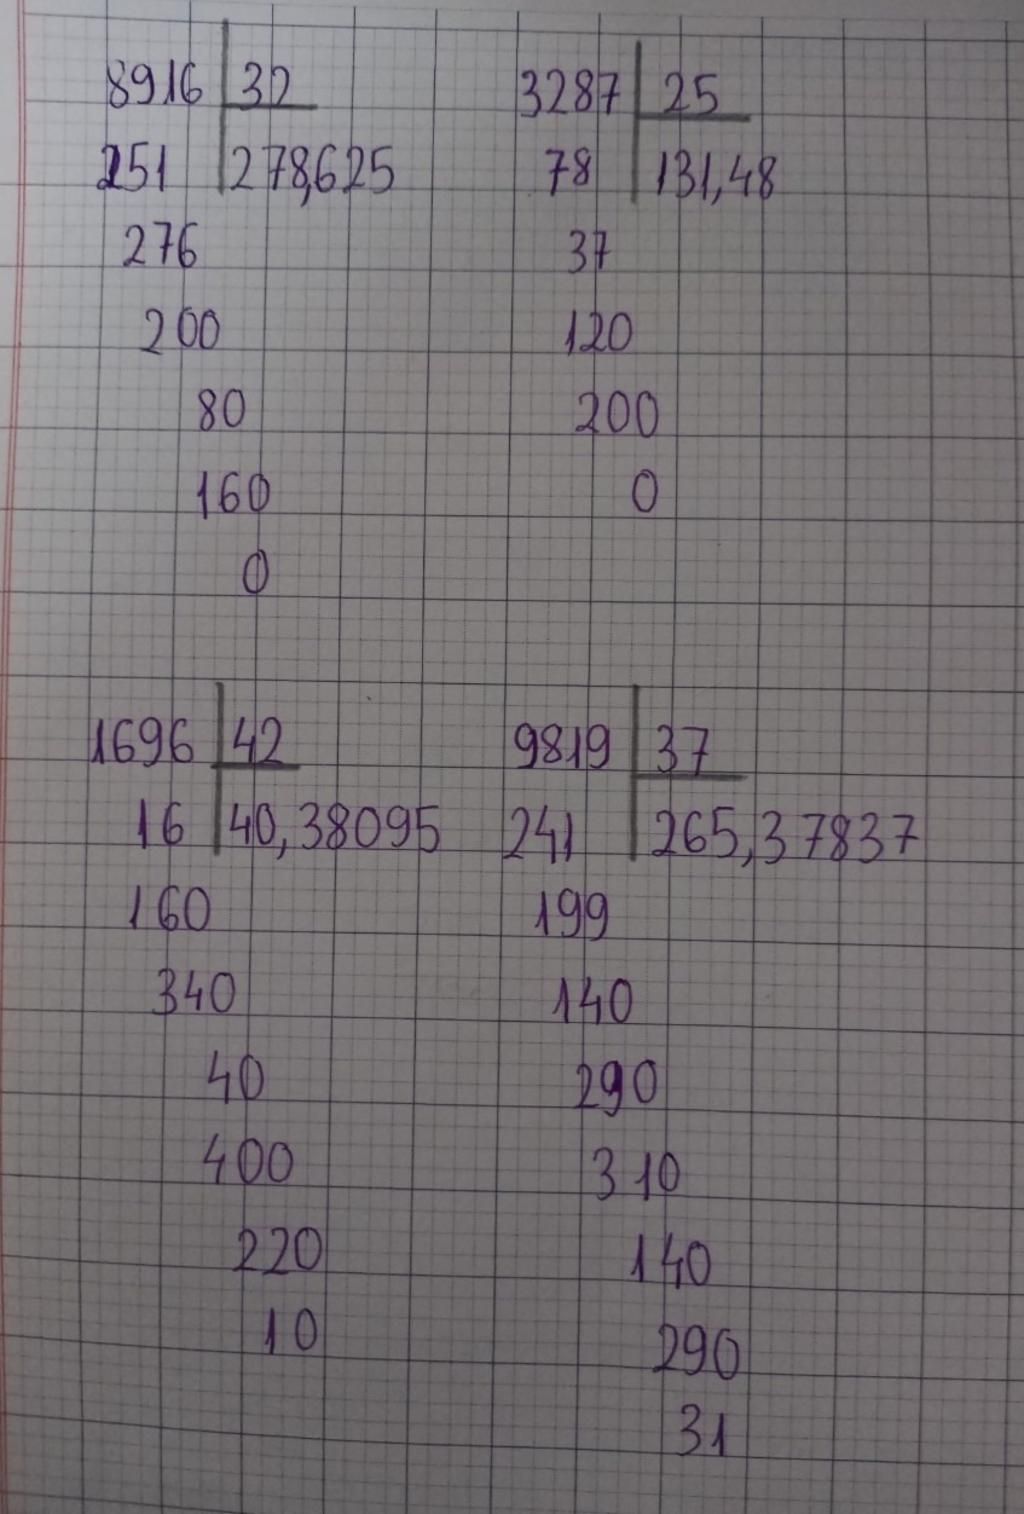 8916 32
251 278,625
276
200
80
160
0
3287 25
78 131,48
37
120
200
0
1696 42
16 40,38095
160
340
40
400
220
10
9819 37
241 265,37837
199
140
290
310
140
290
31